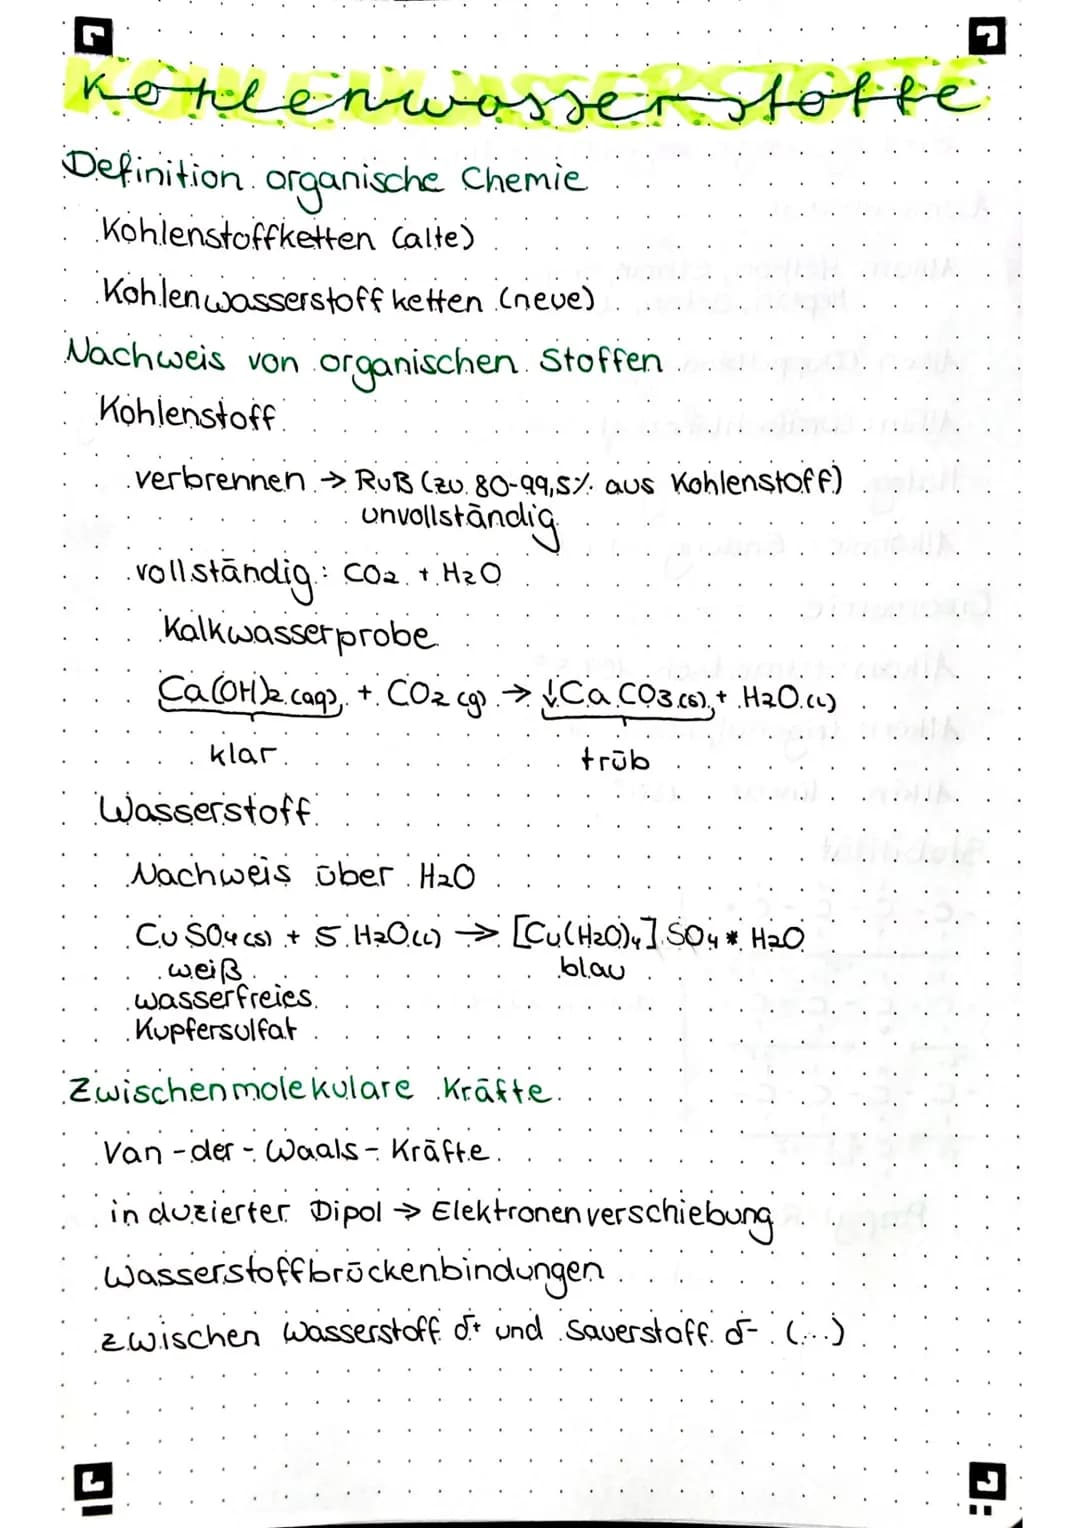 Kohlenwasserstoffe
Definition organische Chemie
Kohlenstoffketten (alte)
Kohlenwasserstoffketten (neue)
Nachweis von organischen Stoffen
Kohlenstoff
verbrennen → Ruß (zu 80-99,5% aus Kohlenstoff)
unvollständig
vollständig: CO2 + H2O
Kalkwasserprobe
Ca(OH)2 (aq) + CO2 (g) → ↓CaCO3 (s) + H2O (l)
klar trüb
Wasserstoff
Nachweis über H2O
CuSO4 (s) + 5 H2O (l) → [Cu(H2O)4] SO4 * H2O
weiß blau
wasserfreies
Kupfersulfat
Zwischenmolekulare Kräfte
Van-der-Waals-Kräfte
induzierter Dipol → Elektronenverschiebung
Wasserstoffbrückenbindungen
zwischen Wasserstoff δ+ und Sauerstoff δ- (...)